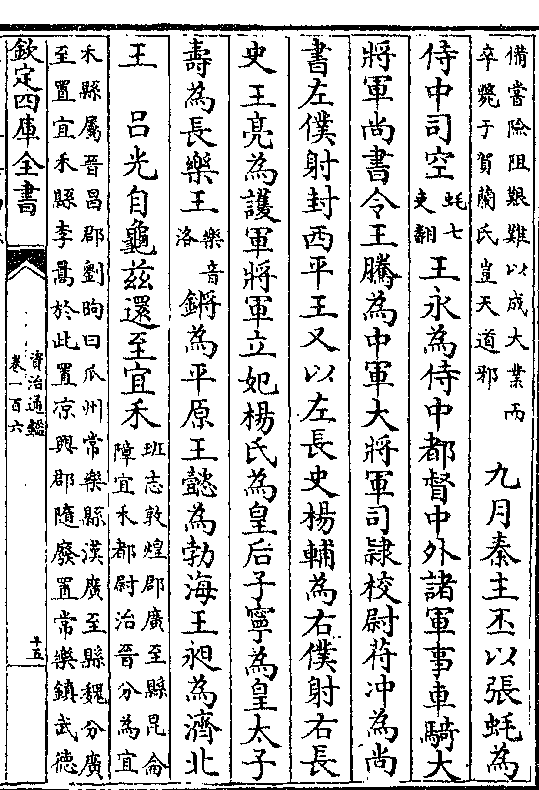 備嘗險阻艱難以成大業而
卒斃于賀蘭氏豈天道邪
九月秦主丕以張蚝為
侍中司空
蚝七
吏翻
王永為侍中都督中外諸軍事車騎大
將軍尚書令王騰為中軍大將軍司隸校尉苻冲為尚
書左僕射封西平王又以左長史楊輔為右僕射右長
史王亮為護軍將軍立妃楊氏為皇后子寧為皇太子
壽為長樂王
樂音
洛
鏘為平原王懿為勃海王昶為濟北
王
吕光自龜茲還至宜禾
班志敦煌郡廣至縣昆侖
障宜禾都尉治晉分為宜
禾縣屬晉昌郡劉昫曰瓜州常樂縣漢廣至縣魏分廣
至置宜禾縣李暠於此置凉興郡隨廢置常樂鎮武德
欽定四庫全書
資治通鑑
卷一百六
十五